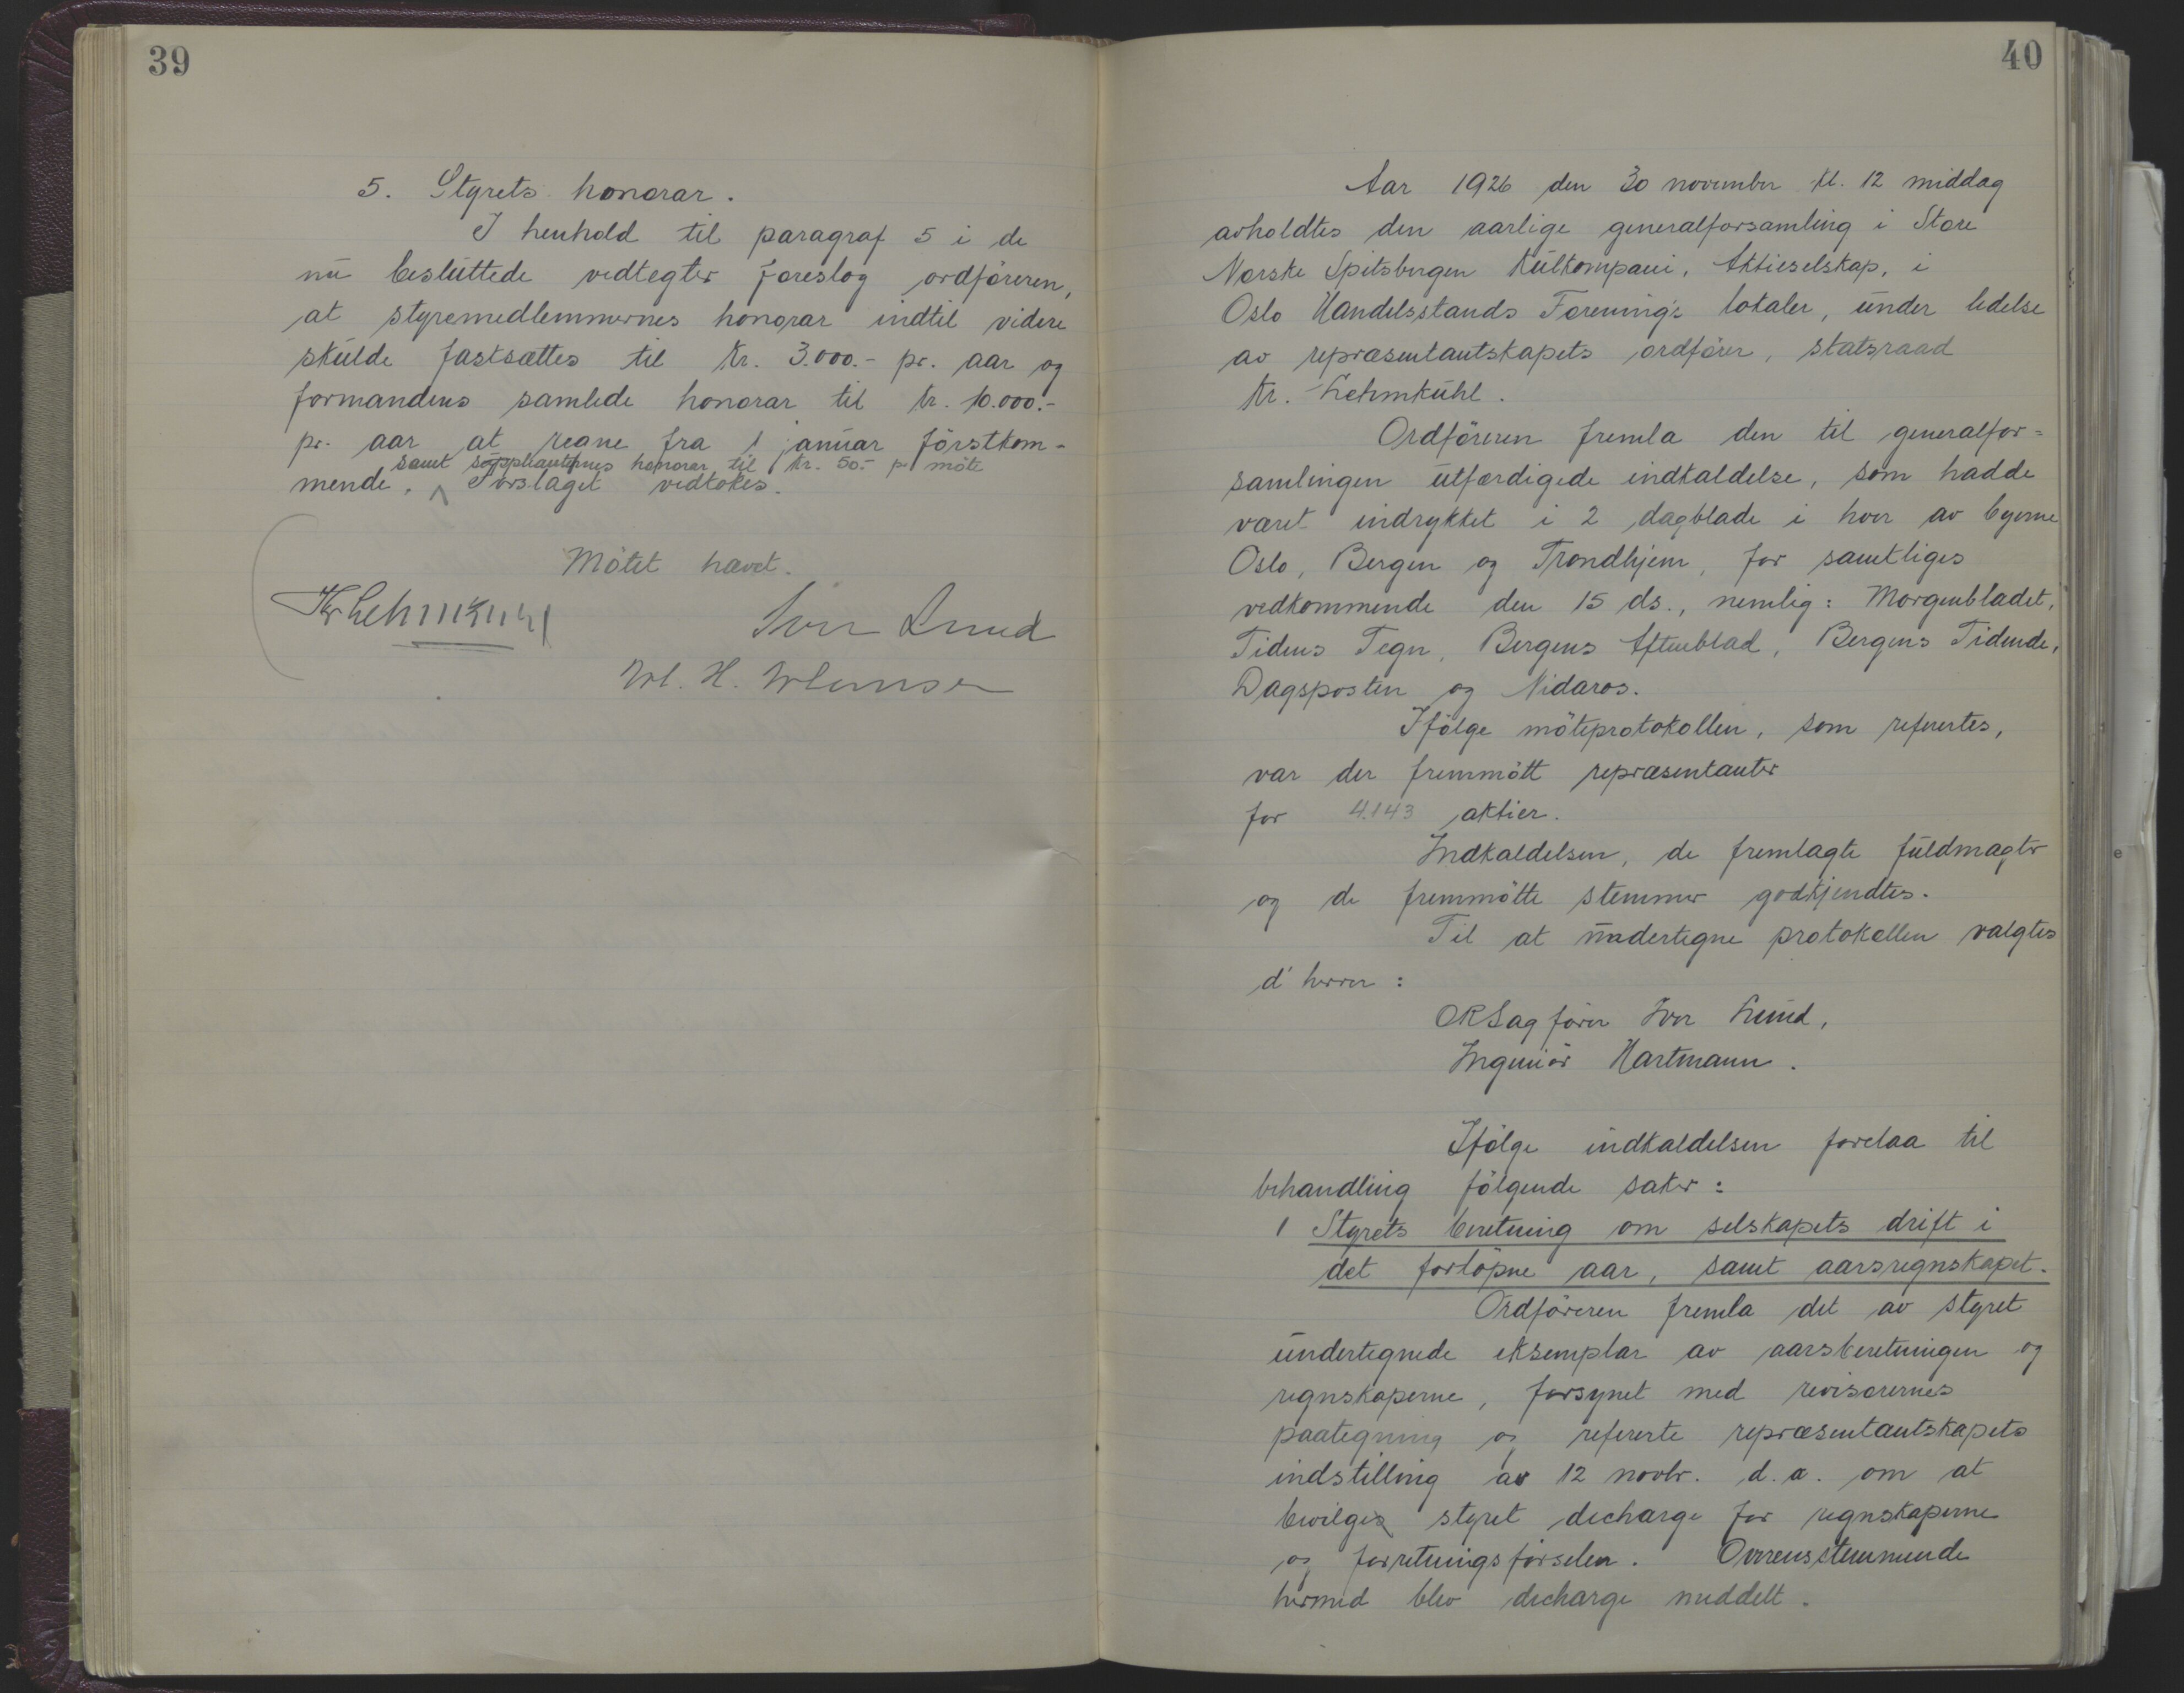 39
5. Styrets honorar.
I henhold til paragraf 5 i de
nu besluttede vedtegter foreslog ordföreren,
at styremedlemmernes honorar indtil videre
skulde fastsættes til kr. 3.000.- pr. aar og
formandens samlede honorar til kr. 10.000.-
pr. aar at regne fra 1 januar förstkom-
samt suppleanternes honorar til kr. 50.- pr möte
mende. Forslaget vedtokes.
Mötet hævet.
Kr Lehmkuhl
Iver Lund
40
Aar 1926 den 30 november kl. 12 middag
avholdtes den aarlige generalforsamling i Store
Norske Spitsbergen Kulkompani, Aktieselskap, i
Oslo Handelsstands Forening's lokaler, under ledelse
av repræsentantskapets ordförer, statsraad
Kr. Lehmkuhl.
Ordföreren fremla den til generalfor=
samlingen utfærdigede indkaldelse, som hadde
været indrykket i 2 dagblade i hver av byerne
Oslo, Bergen og Trondhjem, for samtliges
vedkommende den 15 ds., nemlig: Morgenbladet,
Tidens Tegn, Bergens Aftenblad, Bergens Tidende,
Dagsposten og Nidaros.
Ifölge möteprotokollen, som refertes,
var der fremmött repræsentanter
for 4.143 aktier.
Indkaldelsen, de fremlagte fuldmagter
og de fremmötte stemmer godkjendtes.
Til at undertegne protokollen valgtes
d' herrer:
ORSagförer Iver Lund,
Ingeniör Hartmann.
Ifölge indkaldelsen forelaa til
behandling fölgende saker:
1 Styrets beretning om selskapets drift i
det forlöpne aar, samt aarsregnskapet.
Ordföreren fremla det av styret
undertegnede eksemplar av aarsberetningen og
regnskaperne, forsynet med revisorernes
paategning og refererte repræsentantskapets
indstilling av 12 novbr. d.a. om at
bevilges styret decharge for regnskaperne
og forretningsförselen. Overensstemmende
hermed blev decharge meddelt.